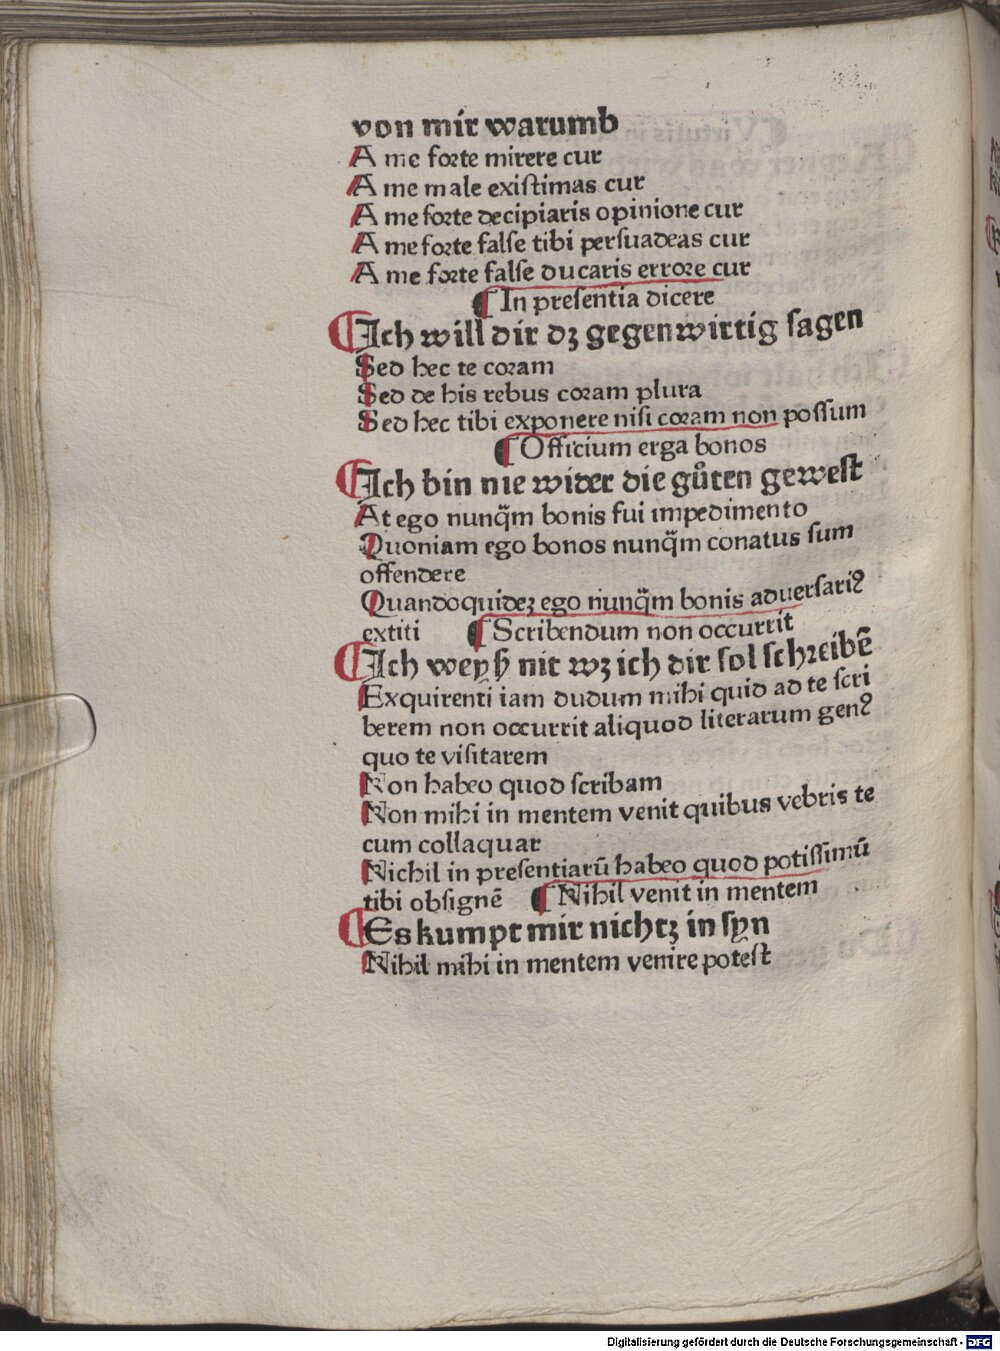 von mir warumb
A me forte mirere cur
A me male existimas cur
A me forte decipiaris opinione cur
A me forte false tibi persuadeas cur
A me forte false ducaris errore cur
¶ In presentia dicere
¶ Ich will dir dꝫ gegenwirtig sagen
Sed hec te coram
Sed de his rebus coram plura
Sed hec tibi exponere nisi coram non possum
¶ Officium erga bonos
¶ Ich bin nie wider die gůten gewest
At ego nunq̃m bonis fui impedimento
Quoniam ego bonos nunq̃m conatus sum
offendere
Quandoquideꝫ ego nunq̃m bonis aduersariꝰ
extiti ¶ Scribendum non occurrit
¶ Ich weyß nit wꝫ ich dir sol schreibē
Exquirenti iam dudum mihi quid ad te scri
berem non occurrit aliquod literarum genꝰ
quo te visitarem
Non habeo quod scribam
Non mihi in mentem venit quibus vebris te
cum collaquar
Nichil in presentiarū habeo quod potissimū
tibi obsignē ¶ Nihil venit in mentem
¶ Es kumpt mir nichtꝫ in syn
Nihil mihi in mentem venire potest
Digitalisierung gefördert durch die Deutsche Forschungsgemeinschaft - DFG